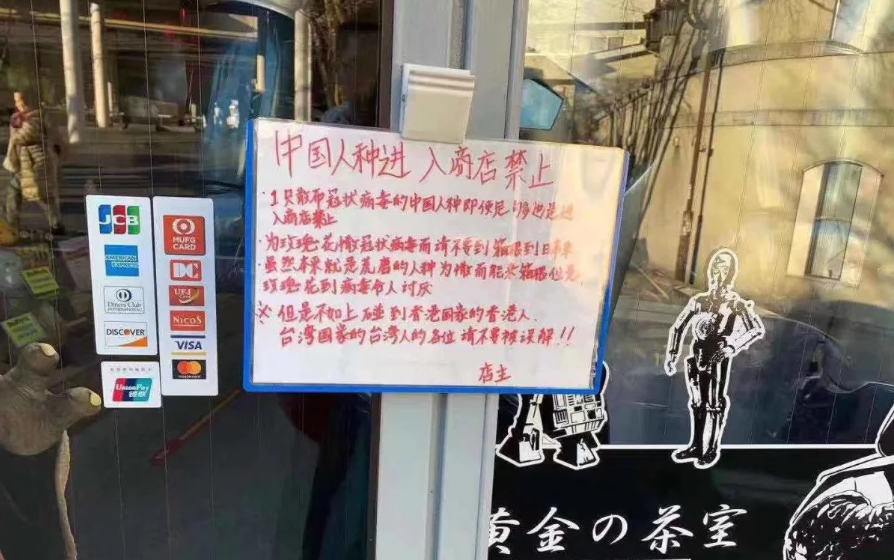 中国人种进入商店禁止
・1只散布冠状病毒的中国人种即使是
入商店禁止
・为玫瑰花撒冠状病毒而请不要到箱根到日本来
・虽然本来就是荒磨的人种为撒而能来箱根但是,
玫瑰花到病毒令人讨厌
※但是不如上碰到香港国家的香港人、
台湾国家的台湾人的各位请不要被误解!!
店主
JCB
AMERICAN EXPRESS
Diners Club
INTERNATIONAL
DISCOVER
UnionPay
银联
MUFG
CARD
DC
UFJ Card
NICOS
VISA
mastercard
黄金の茶室